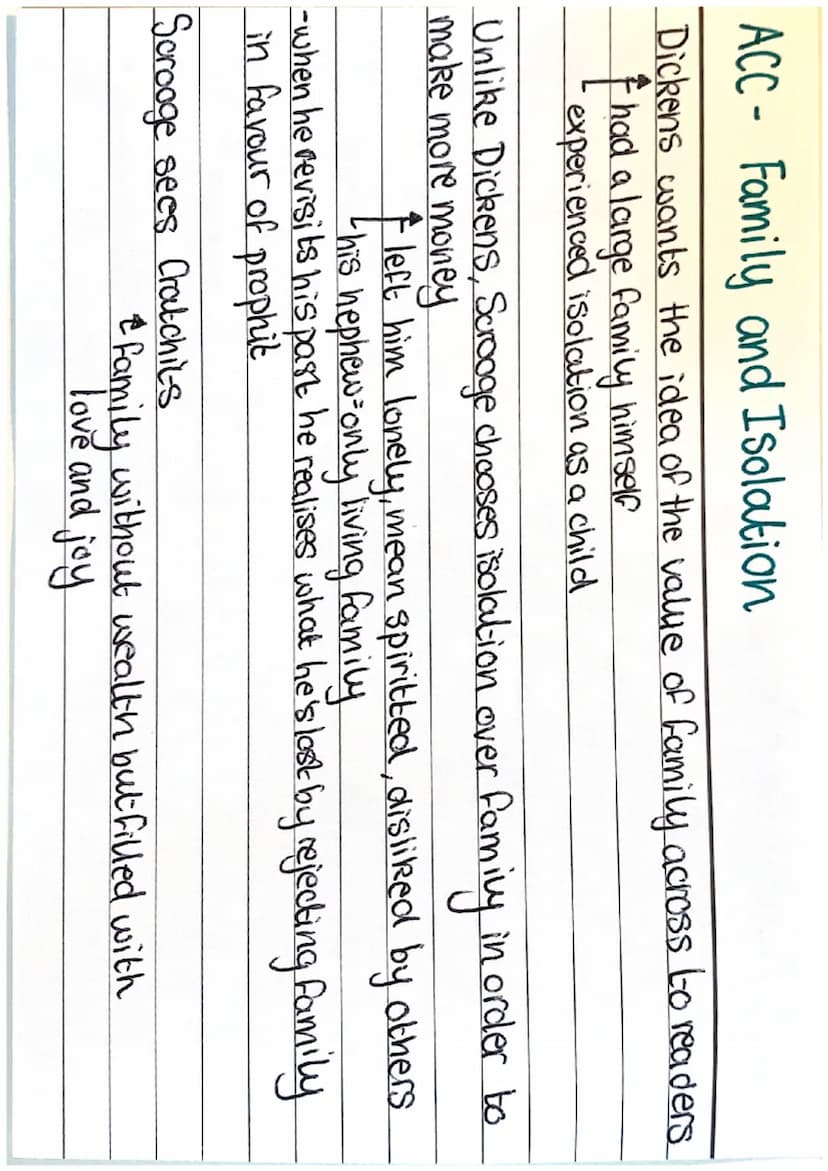 ACC - Family and Isolation
Dickens wants the idea of the value of family across to readers
↳ had a large family himself
↳ experienced isolation as a child
Unlike Dickens, Scrooge chooses isolation over family in order to
make more money
↳ left him lonely, mean spiritted, disliked by others
↳ his nephew = only living family
- when he revisits his past he realises what he's lost by rejecting family
in favour of prophit
Scrooge sees Cratchits
↳ family without wealth but filled with
love and joy